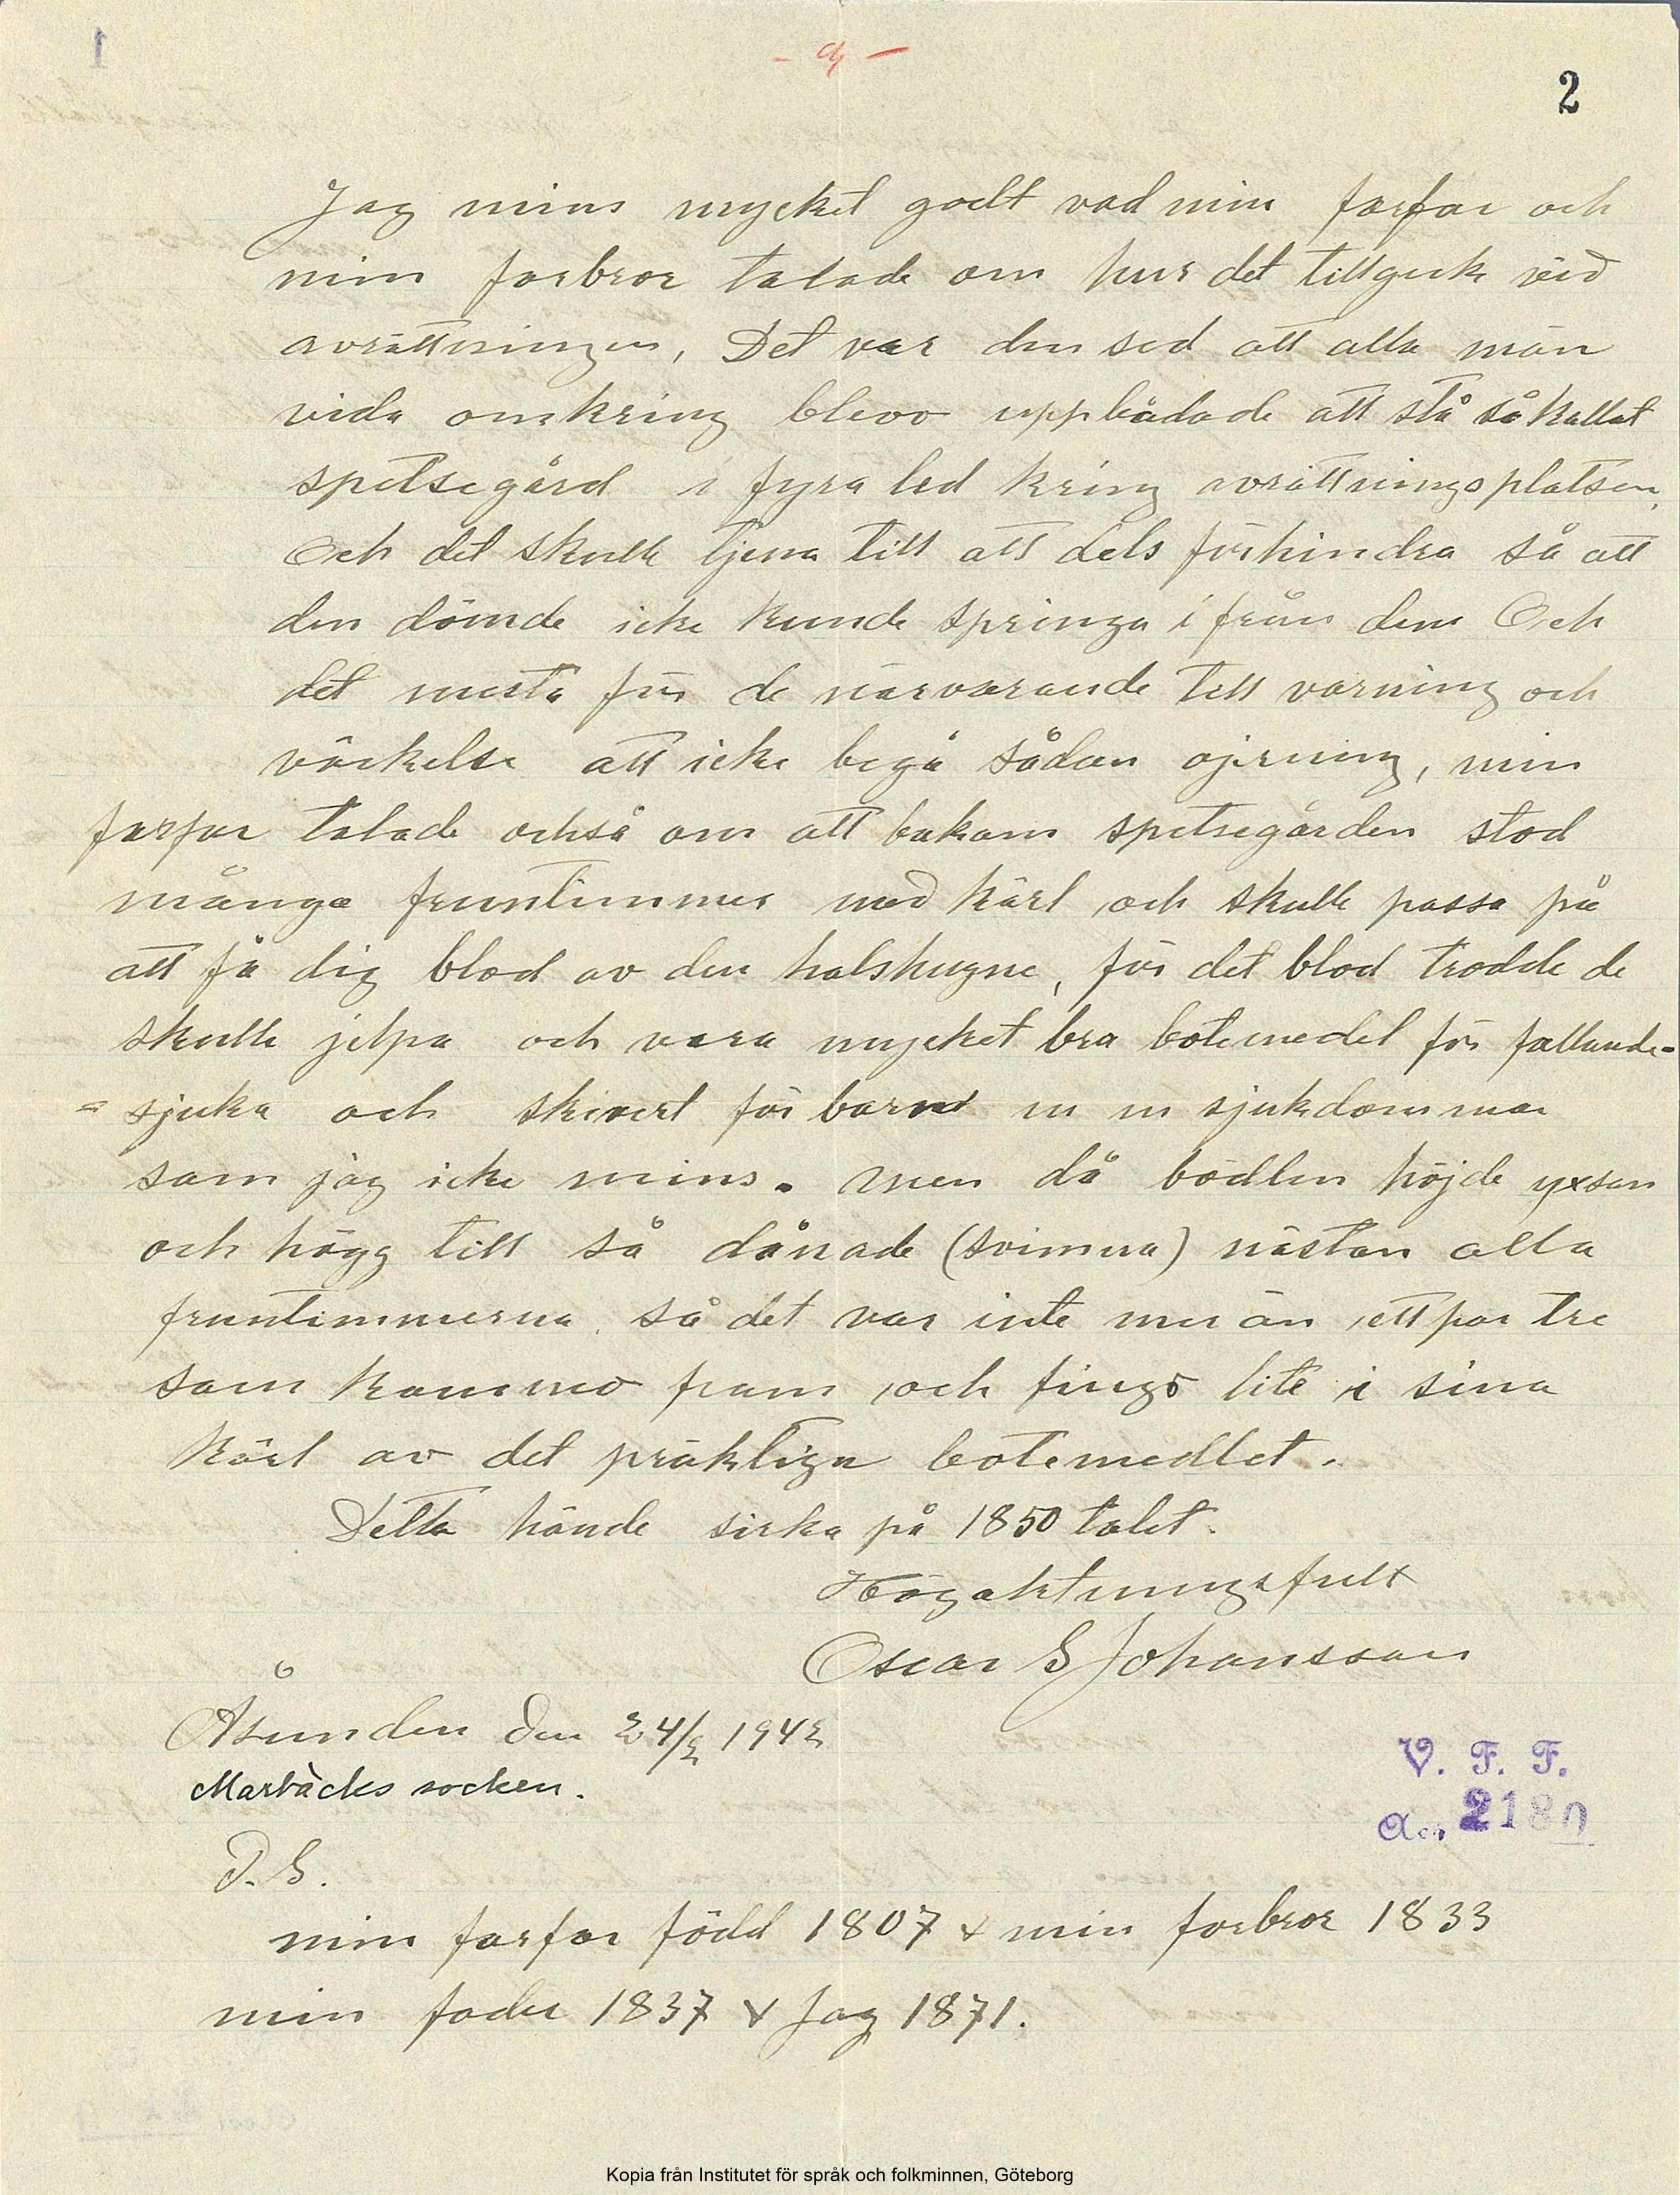 2
Jag mins mycket godt vad min farfar och
min farbror talade om hur det tillgick vid
avrättningen, Det var den sed att alla män
vida omkring blevo uppbådade att stå så kallat
spetsegård i fyra led kring avrättningsplatsen,
Och det skulle tjena till att dels förhindra så att
den dömde icke kunde springa ifrån dem Och
det mesta för de närvarande till varning och
väckelse att icke begå sådan ojerning, min
farfar talade också om att bakom spetsegården stod
många fruntimmer med kärl och skulle passa på
att få dig blod av den halshugne, för det blod trodde de
skulle jelpa och vara mycket bra botemedel för fallande-
= sjuka och skivert för barn m m sjukdommar
som jag icke mins. men då bödlen höjde yxsan
och högg till så dånade (svimma) nästan alla
fruntimmerna, så det var inte mer än ett par tre
som kommo fram och fingo lite i sina
kärl av det präktiga botemedlet.
Detta hände sirka på 1850 talet.
Högaktningsfullt
Oscar S Johansson
Åsunden den 24/2 1942
Marbäcks socken.
V. F. F.
Acc. 2180
P.S.
min farfar född 1807 & min farbror 1833
min fader 1837 & Jag 1871.
Kopia från Institutet för språk och folkminnen, Göteborg